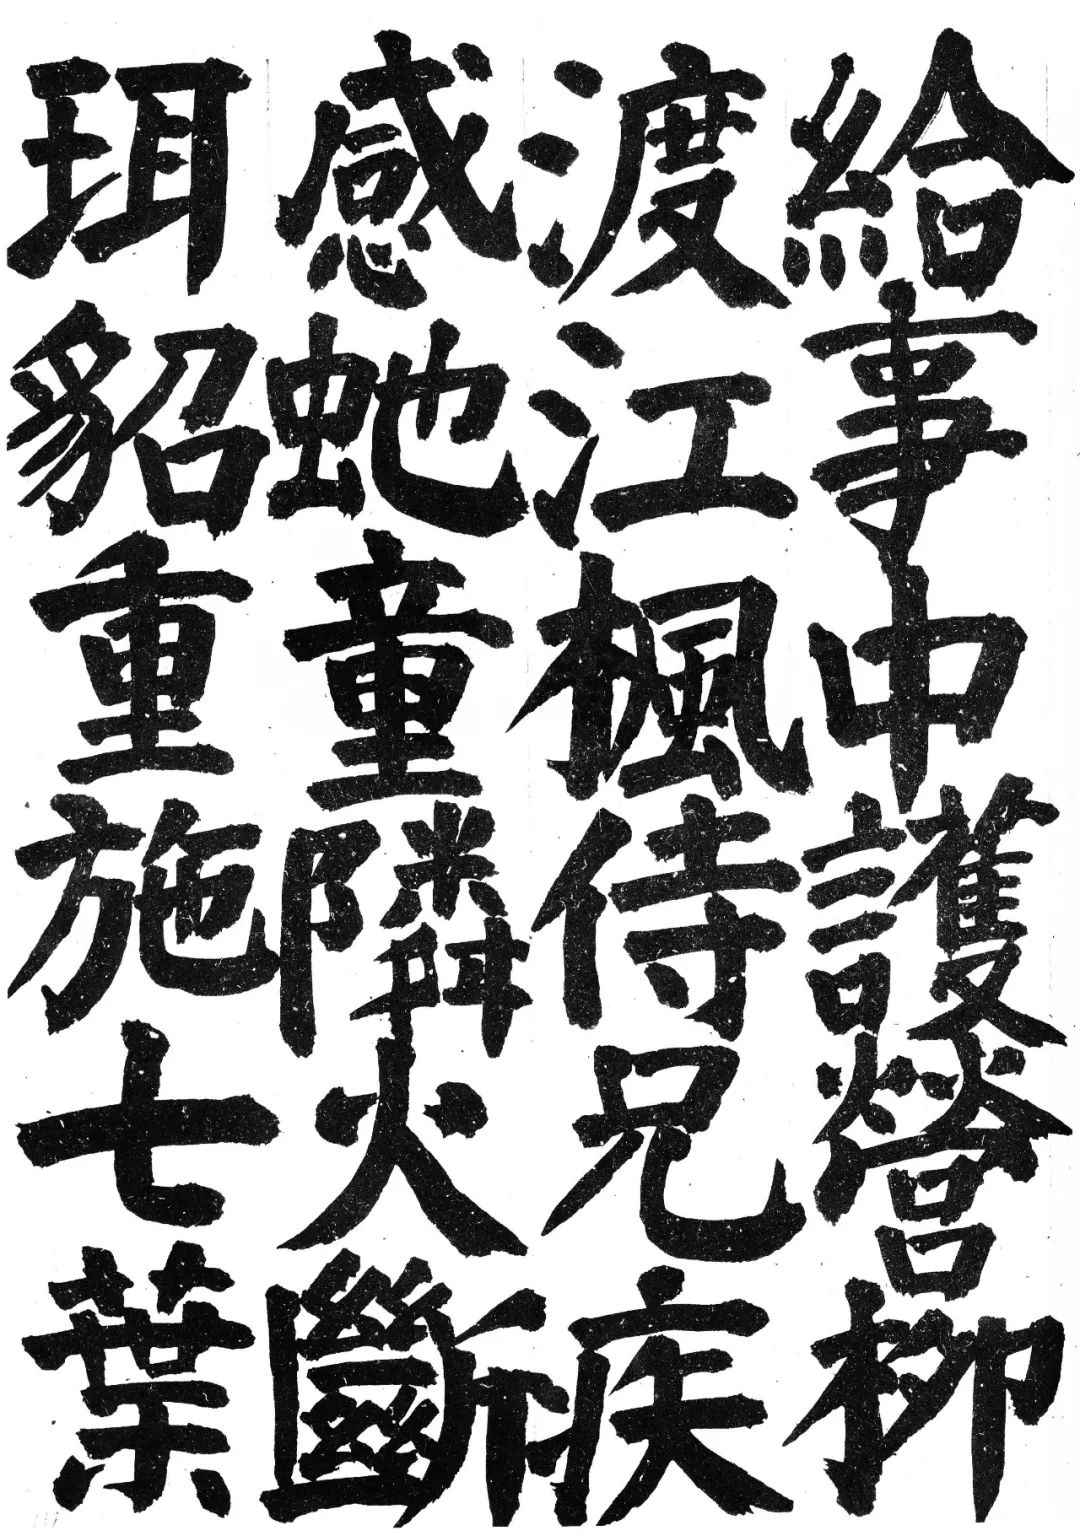 給事中護營柳
渡江楓侍兄疾
感虵童隣火斷
珥貂重施七葉